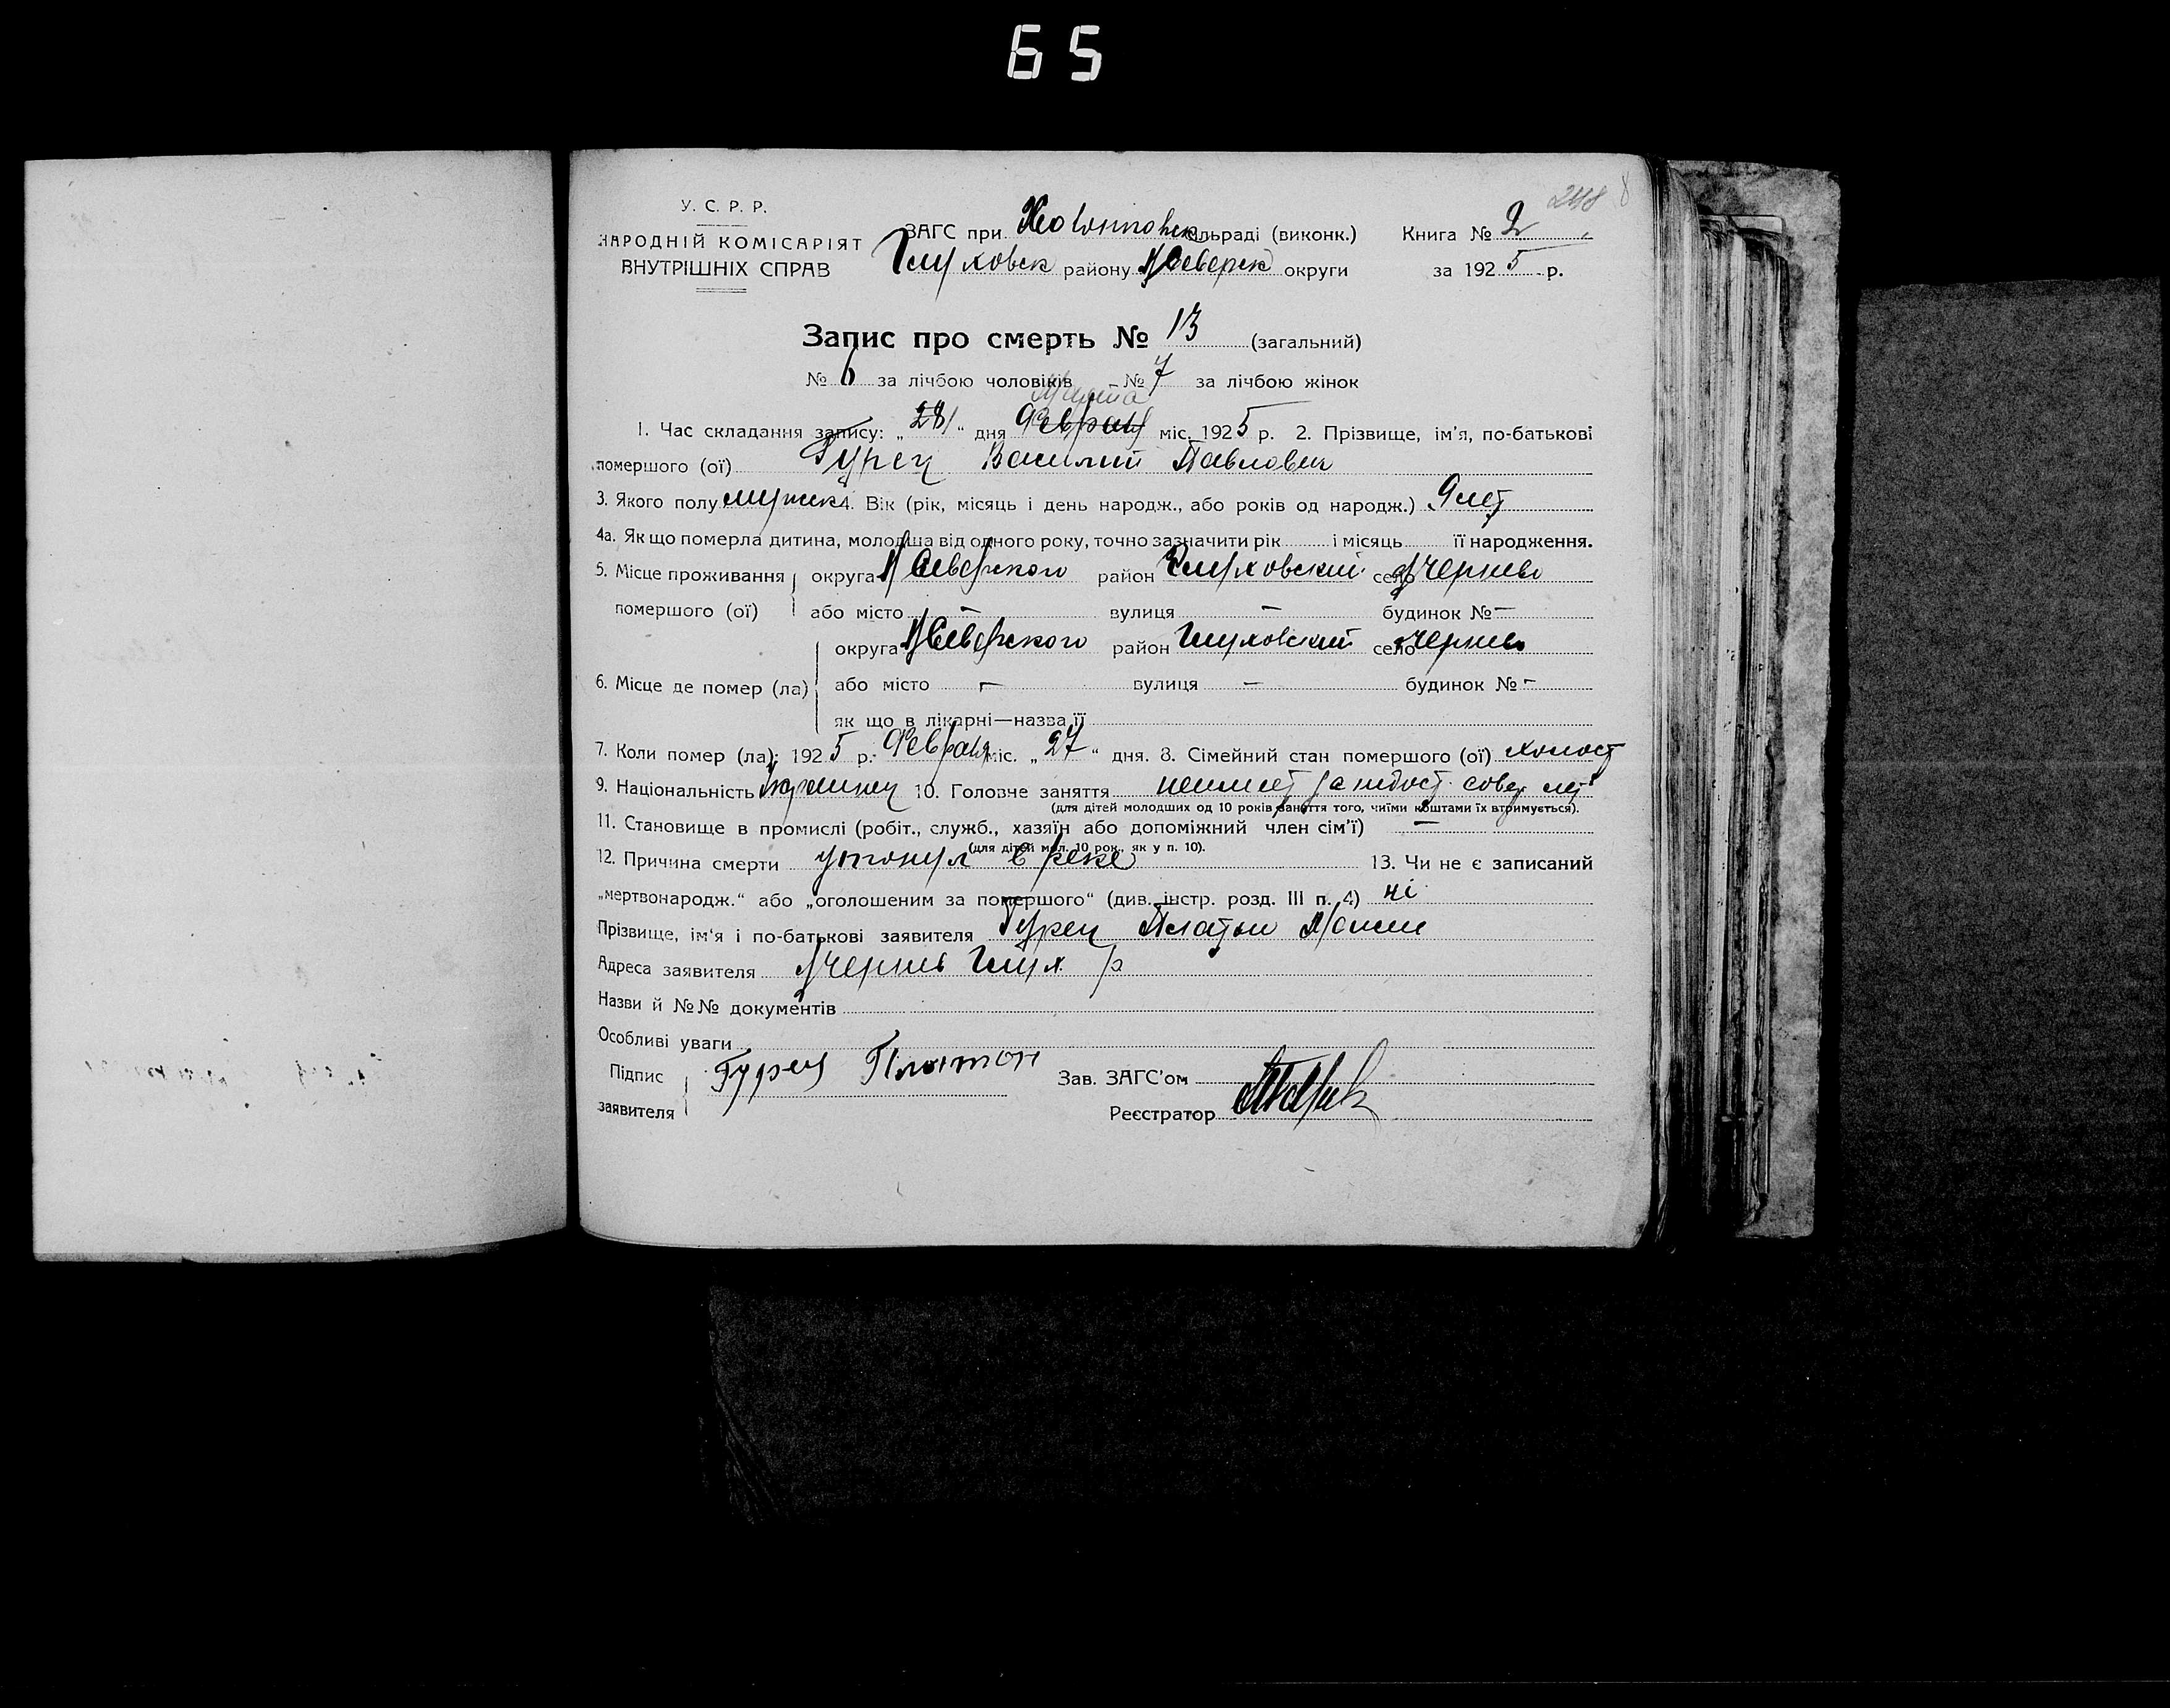 65
248
У. С. Р. Р.
НАРОДНІЙ КОМІСАРІЯТ
ВНУТРІШНІХ СПРАВ
ЗАГС при сільраді (виконк.) Книга № 2
Глуховск району Н Северск округи за 1925 р.
Запис про смерть № 13 (загальний)
№ 6 за лічбою чоловіків № 7 за лічбою жінок
Марта
1. Час складання запису: „28/“ дня Февраля міс. 1925 р. 2. Прізвище, ім'я, по-батькові
помершого (ої) Гурец Василий Павлович
3. Якого полу мужск 4. Вік (рік, місяць і день народж., або років од народж.) 9 лет
4а. Як що померла дитина, молодша від одного року, точно зазначити рік і місяць її народження.
5. Місце проживання округа Н Северского район Глуховский село
помершого (ої) або місто — вулиця — будинок № —
округа Н Северского район Глуховский село
6. Місце де помер (ла) або місто — вулиця — будинок № —
як що в лікарні—назва її
7. Коли помер (ла): 1925 р. Февраля міс. „27“ дня. 8. Сімейний стан помершого (ої) холост
9. Національність Украинец 10. Головне заняття неимеет за недост. совер лет
(для дітей молодших од 10 років заняття того, чиїми коштами їх втримується).
11. Становище в промислі (робіт., служб., хазяїн або допоміжний член сім'ї) —
(для дітей мол. 10 рок., як у п. 10).
12. Причина смерти утонул в реке 13. Чи не є записаний
„мертвонародж.“ або „оголошеним за помершого“ (див. інстр. розд. III п. 4) ні
Прізвище, ім'я і по-батькові заявителя Гурец Платон
Адреса заявителя Глух р
Назви й №№ документів
Особливі уваги
Підпис Гурец Платон Зав. ЗАГС'ом
заявителя Реєстратор